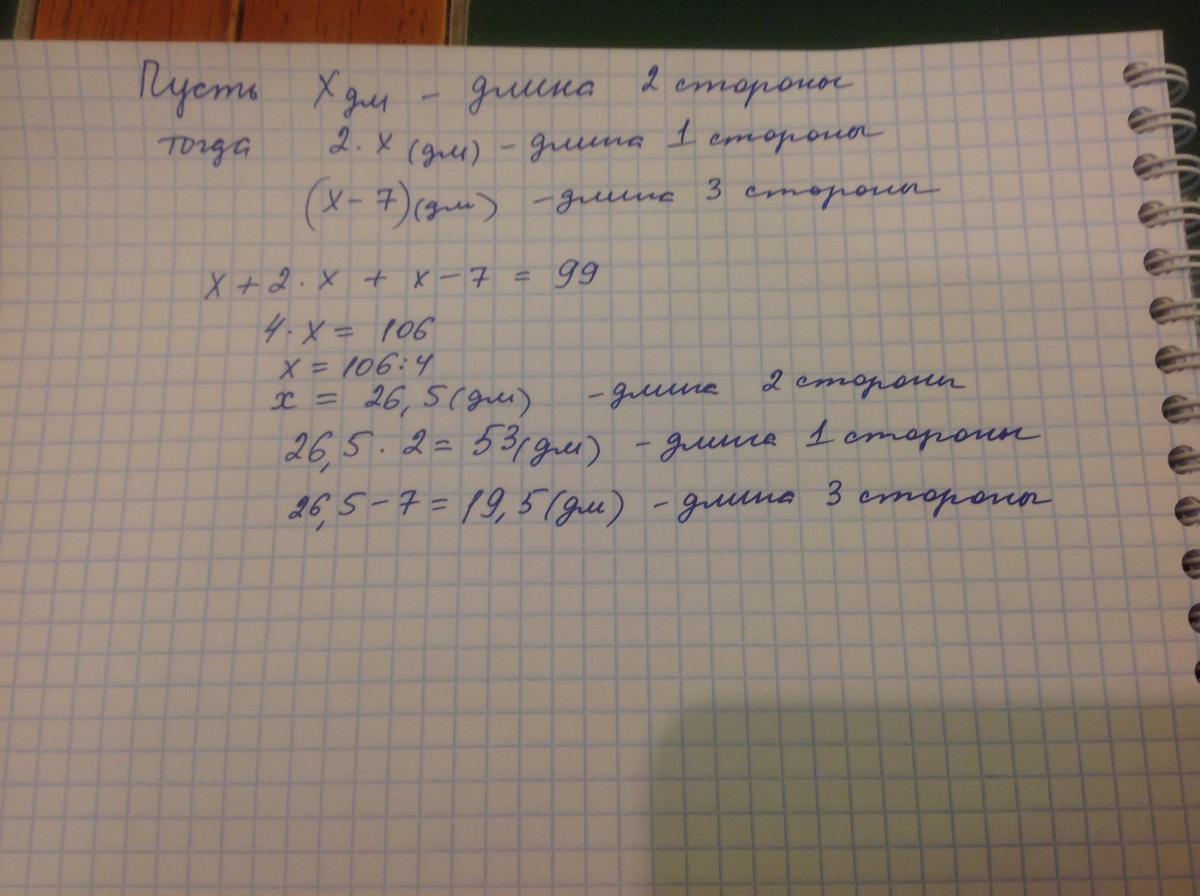 Пусть х дм – длина 2 стороны
тогда 2·х (дм) – длина 1 стороны
(х – 7)(дм) – длина 3 стороны
х + 2·х + х – 7 = 99
4·х = 106
х = 106:4
х = 26,5 (дм) – длина 2 стороны
26,5 · 2 = 53 (дм) – длина 1 стороны
26,5 – 7 = 19,5 (дм) – длина 3 стороны